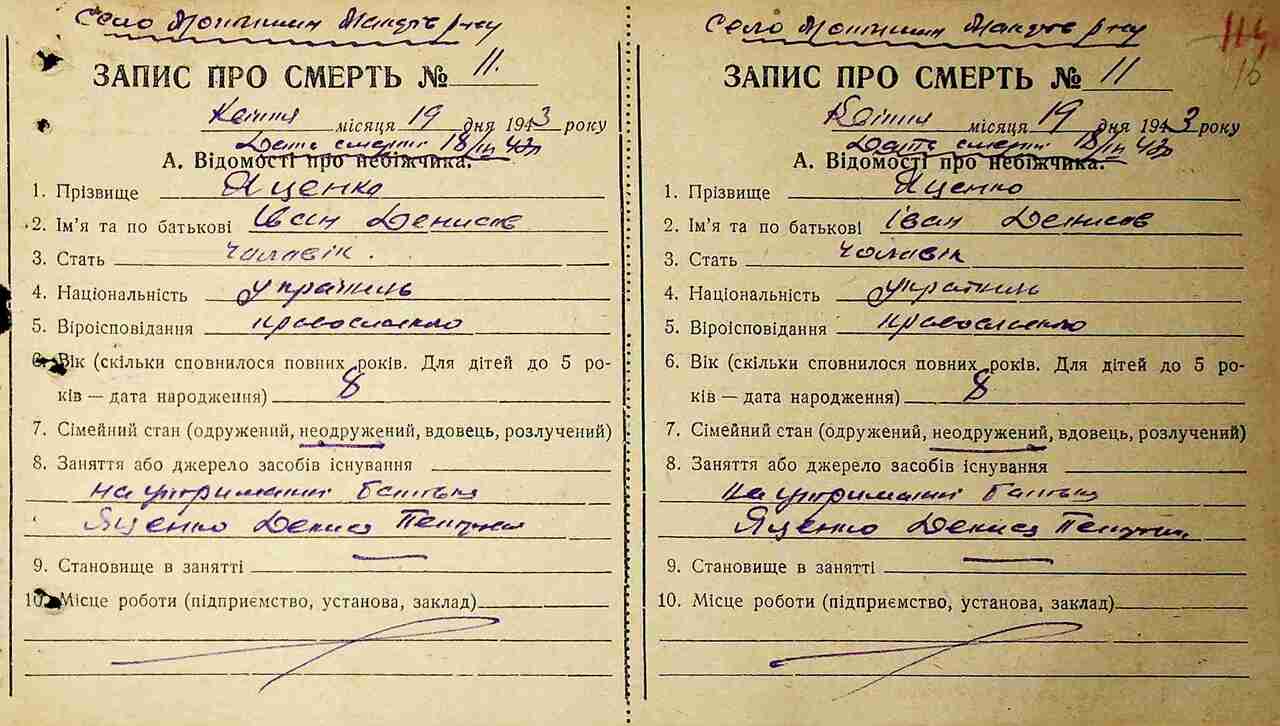 Село
ЗАПИС ПРО СМЕРТЬ № 11.
Квітня місяця 19 дня 1943 року
Дата смерти 18/IV 43р
А. Відомості про небіжчика.
1. Прізвище Яценко
2. Ім'я та по батькові Іван Денисов
3. Стать Чоловік.
4. Національність українець
5. Віроісповідання православного
6. Вік (скільки сповнилося повних років. Для дітей до 5 ро-
ків — дата народження) 8
7. Сімейний стан (одружений, неодружений, вдовець, розлучений)
8. Заняття або джерело засобів існування
на утриманні батька
Яценко Дениса
9. Становище в занятті —
10. Місце роботи (підприємство, установа, заклад)
Село
ЗАПИС ПРО СМЕРТЬ № 11
Квітня місяця 19 дня 1943 року
Дата смерти 18/IV 43р
А. Відомості про небіжчика.
1. Прізвище Яценко
2. Ім'я та по батькові Іван Денисов
3. Стать Чоловік
4. Національність українець
5. Віроісповідання православного
6. Вік (скільки сповнилося повних років. Для дітей до 5 ро-
ків — дата народження) 8
7. Сімейний стан (одружений, неодружений, вдовець, розлучений)
8. Заняття або джерело засобів існування
на утриманні батька
Яценко Дениса
9. Становище в занятті —
10. Місце роботи (підприємство, установа, заклад)